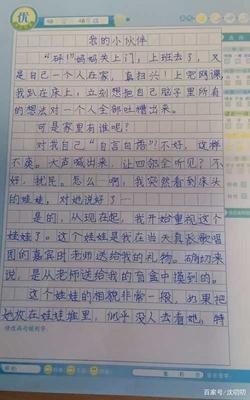 优
我的小伙伴
“砰！”妈妈关上门，上班去了，又
是自己一个人在家，真扫兴！上完网课，
我趴在床上，立刻想把自己脑子里所有
的想法对一个人全部吐槽出来。
可是家里有谁呢？
对我自己“自言自语”？不好，这样
不爽。大声喊出来，让四邻全听见？不
好，扰民。怎么一啊，我突然看到床头
的娃娃，对她说好了一
是的，从现在起，我开始重视这个
娃娃了。这个娃娃是我在当天真长歌唱
团的嘉宾时老师送给我的礼物。确切来
说，是从老师送给我的盲盒中摸到的。
这个娃娃的相貌非常一般，如果把
她放在娃娃堆里，似乎没人去看她，特
百家号/沈叨叨